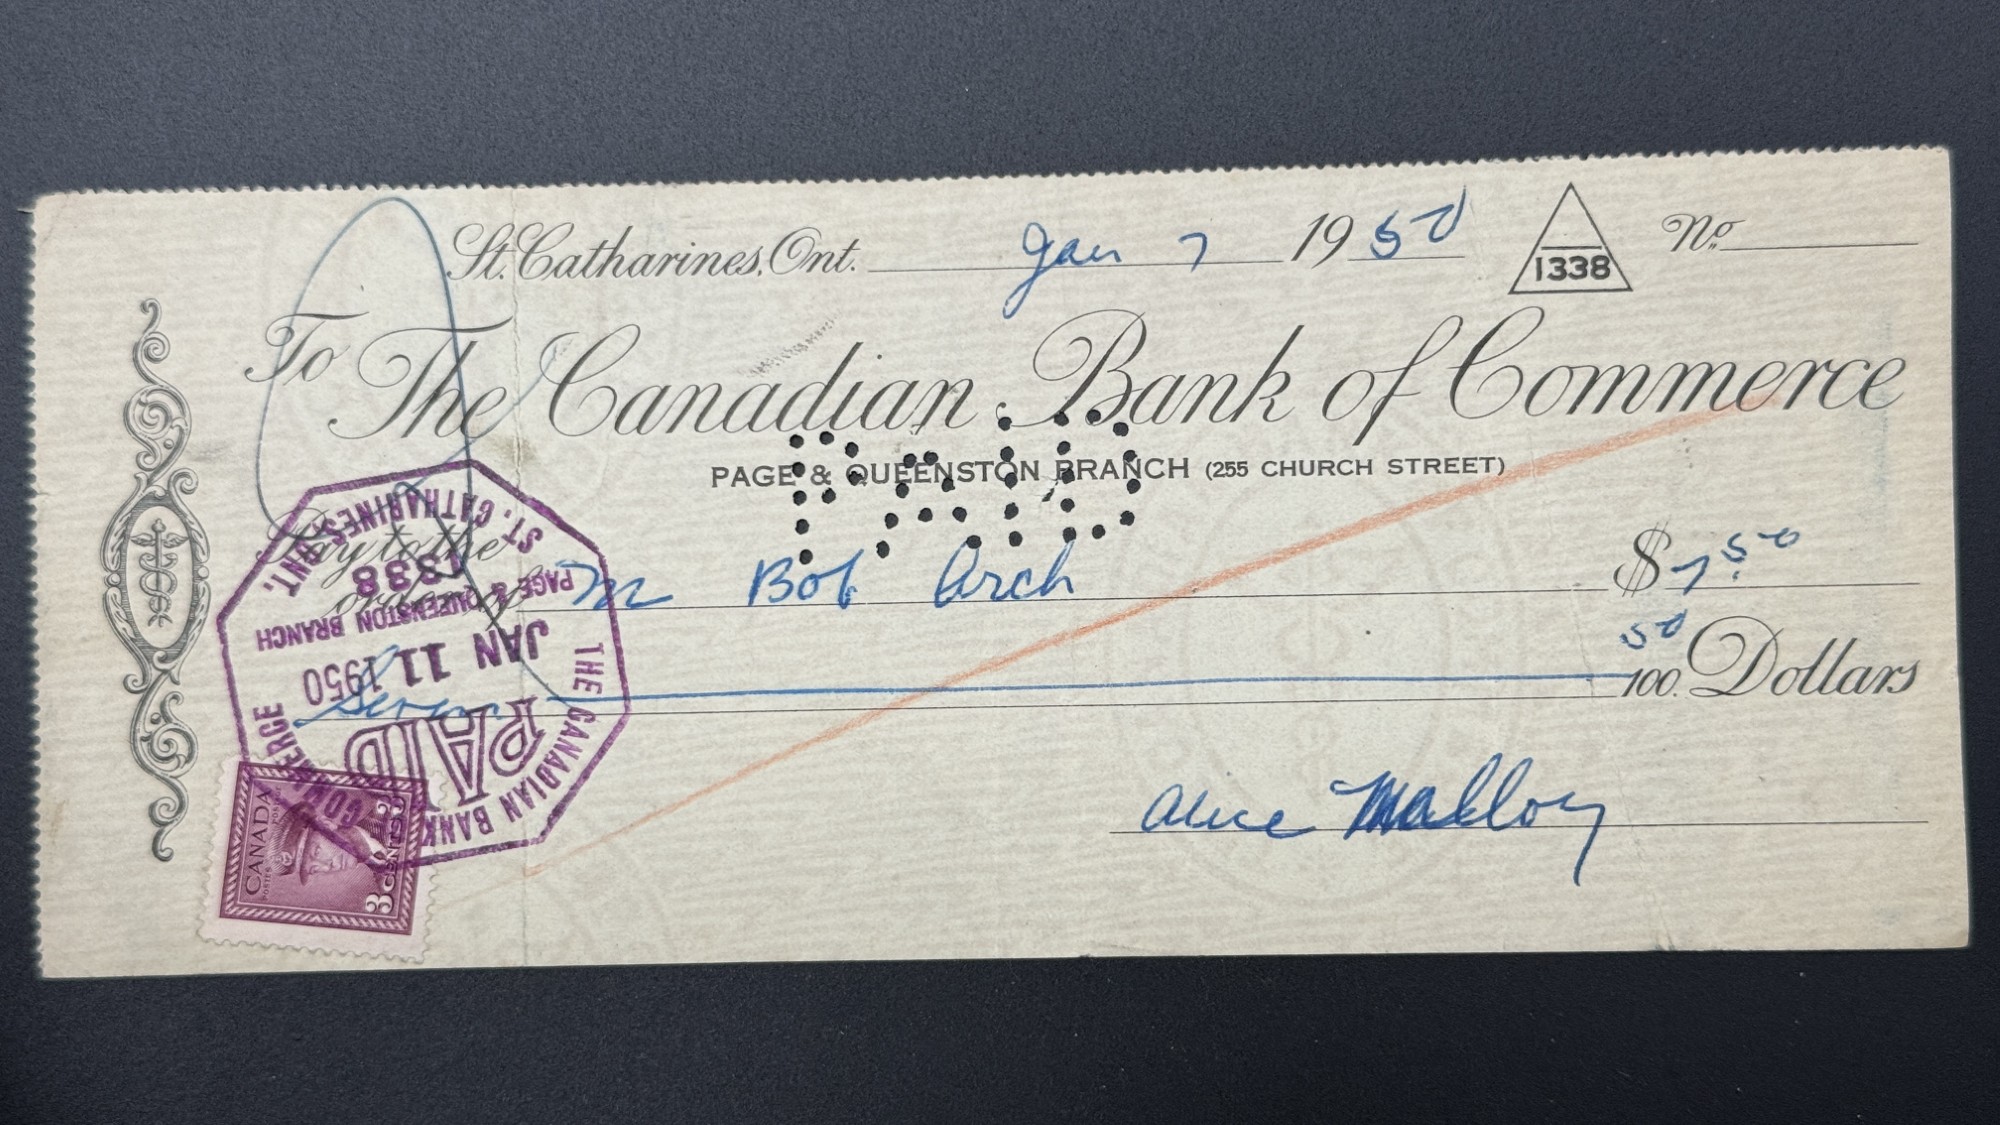 St. Catharines, Ont. Jan 7 1950 1338 No.
To The Canadian Bank of Commerce
PAGE & QUEENSTON BRANCH (255 CHURCH STREET)
PAID
Pay to the
order of M Bob Arch $ 7.50
Seven 50/100 Dollars
Alice Malloy
THE CANADIAN BANK COMMERCE
PAID
JAN 11 1950
PAGE & QUEENSTON BRANCH
1338
ST. CATHARINES, ONT.
CANADA
POSTES POSTAGE
3 CENTS 3